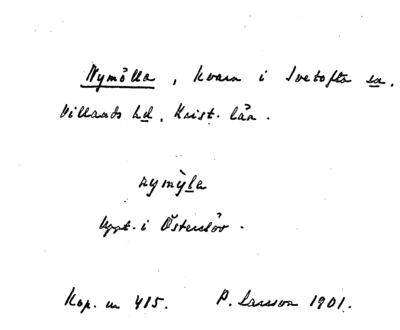 Nymölla, kvarn i Ivetofta sn.
Villands hd, Krist. län.
nymỳla
Uppt. i Österslöv.
Kap. nr 415. P. Larsson 1901.